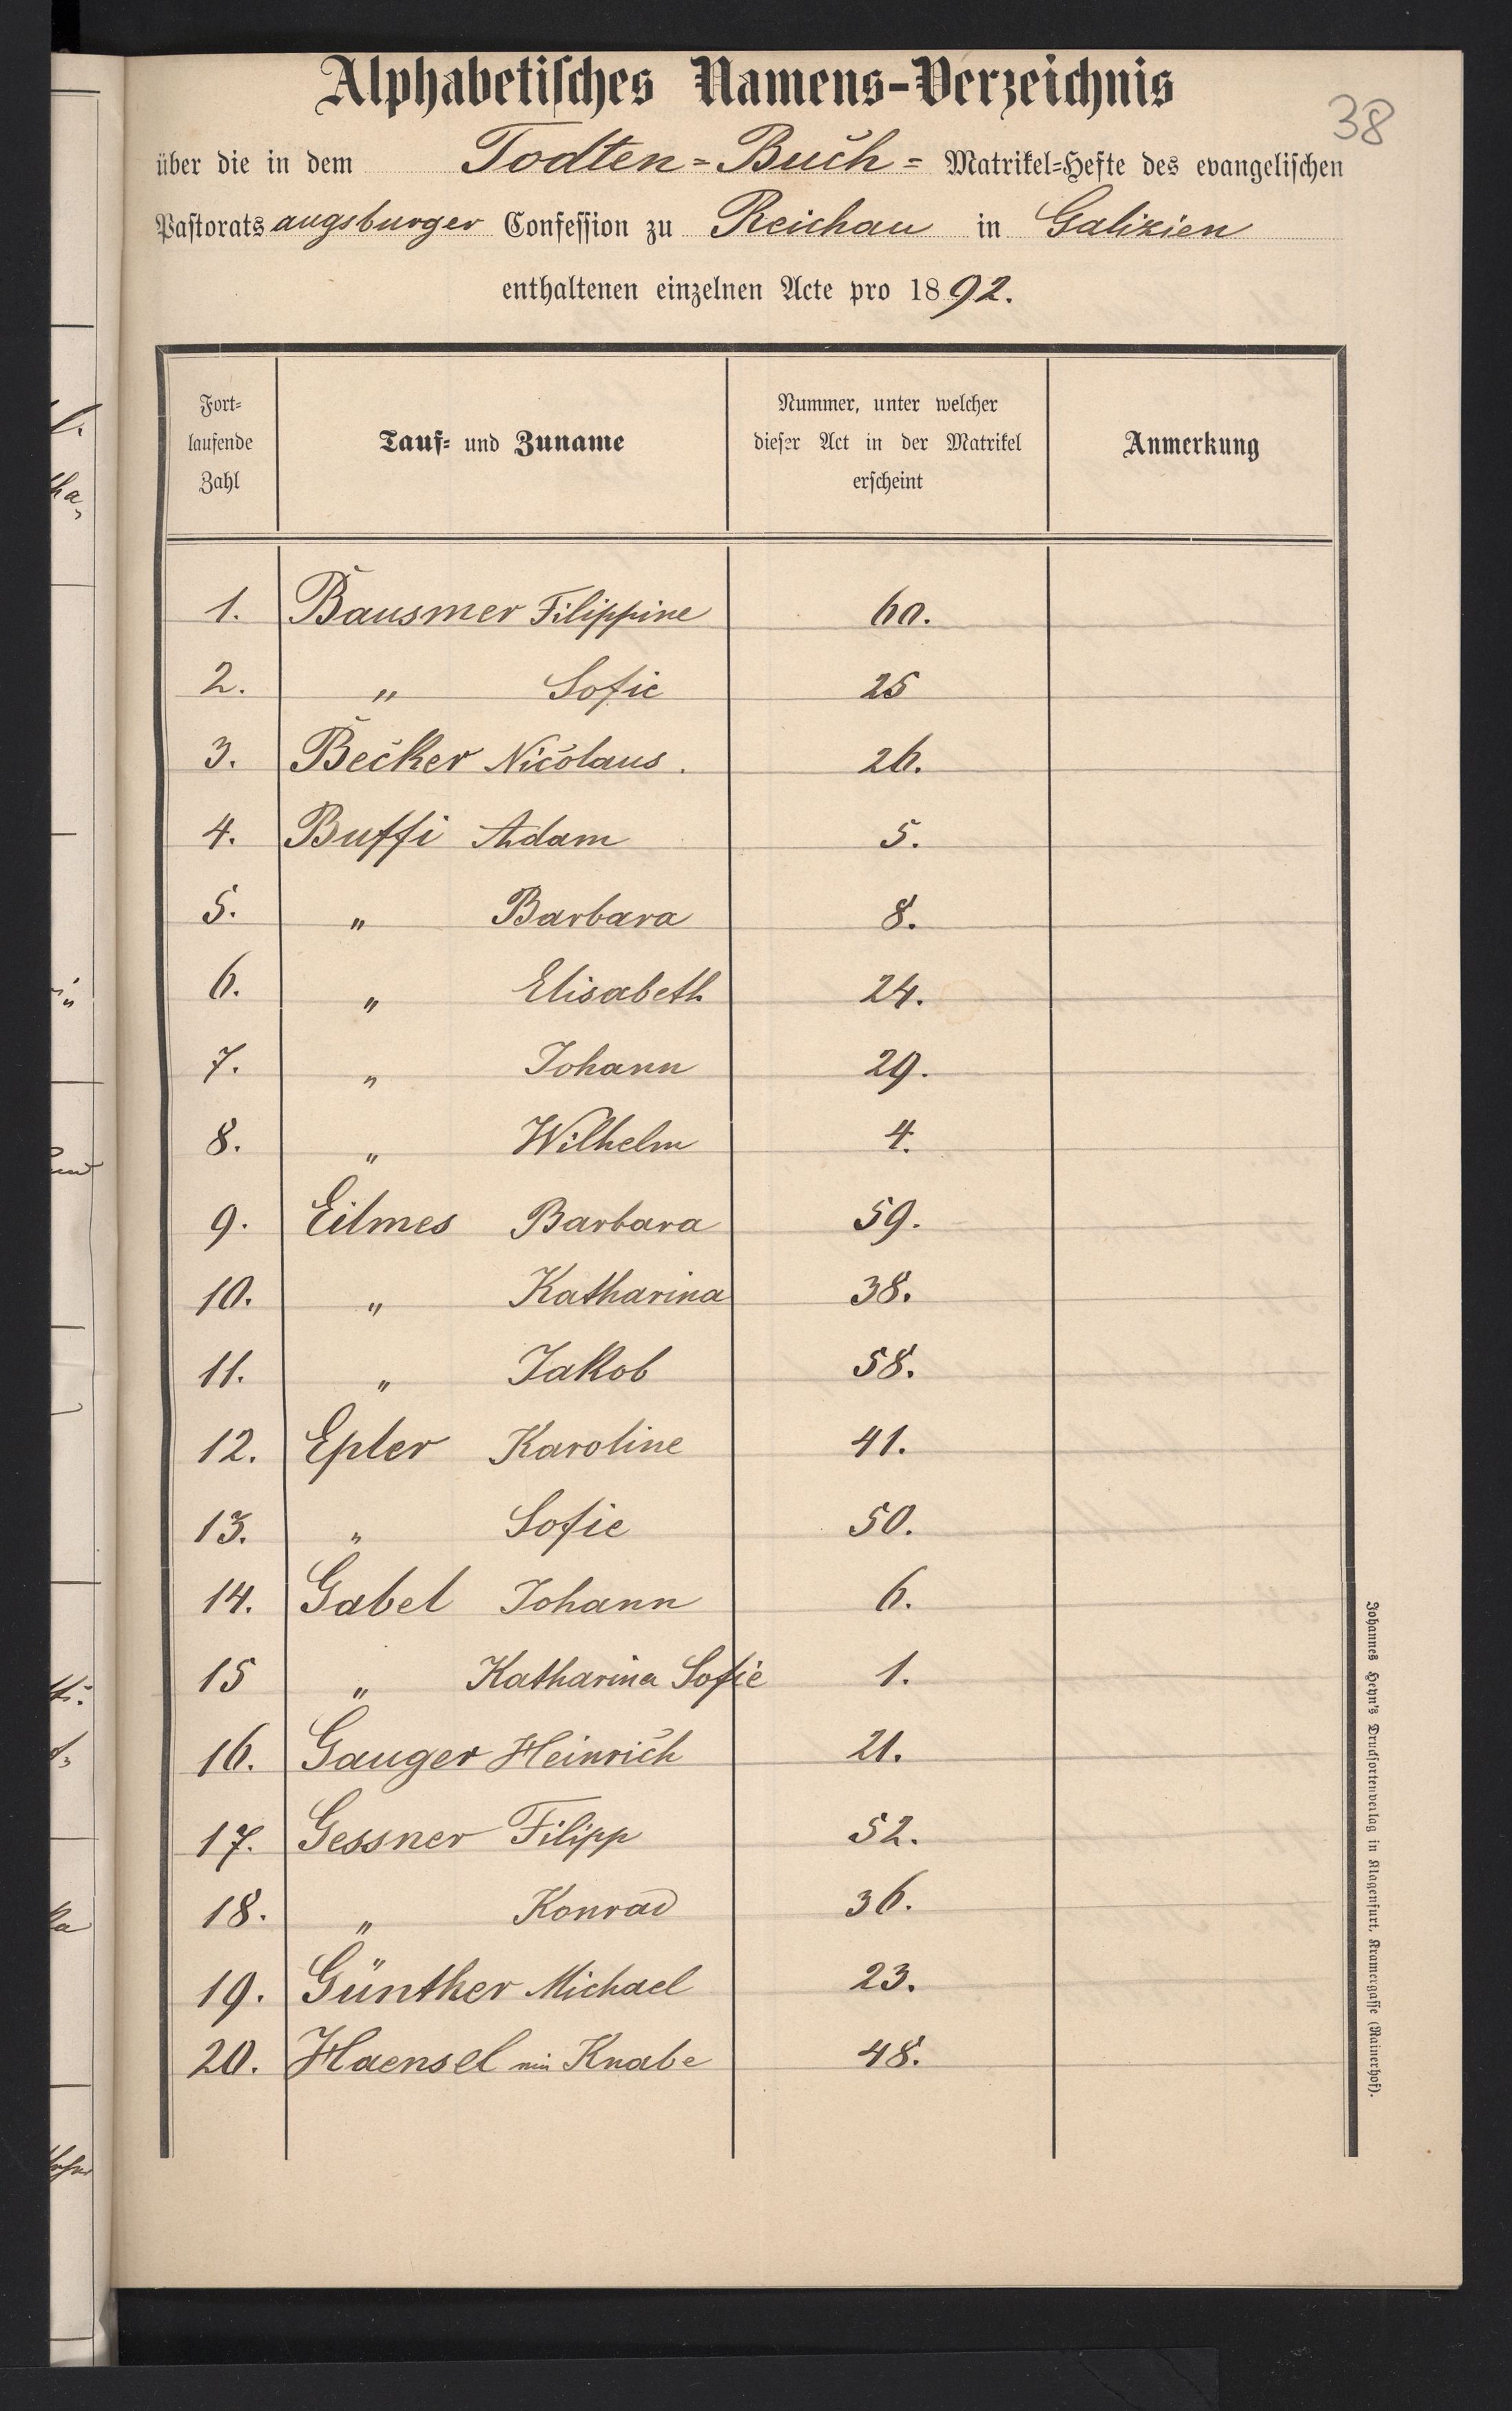 Alphabetisches Namens-Verzeichnis
38
über die in dem Todten-Buch- Matrikel-Hefte des evangelischen
Pastorats augsburger Confession zu Reichau in Galizien
enthaltenen einzelnen Acte pro 1892.
Fort-
laufende
Zahl
Tauf- und Zuname
Nummer, unter welcher
dieser Act in der Matrikel
erscheint
Anmerkung
1. Bausmer Filippine 60.
2. " Sofie 25
3. Becker Nicolaus. 26.
4. Buffi Adam 5.
5. " Barbara 8.
6. " Elisabeth 24.
7. " Johann 29.
8. " Wilhelm 4.
9. Eilmes Barbara 59.
10. " Katharina 38.
11. " Jakob 58.
12. Epler Karoline 41.
13. " Sofie 50.
14. Gabel Johann 6.
15 " Katharina Sofie 1.
16. Gauger Heinrich 21.
17. Gessner Filipp 52.
18. " Konrad 36.
19. Günther Michael 23.
20. Haensel Knabe 48.
Johannes Heyn's Drucksortenverlag in Klagenfurt, Kramergasse (Rainerhof).